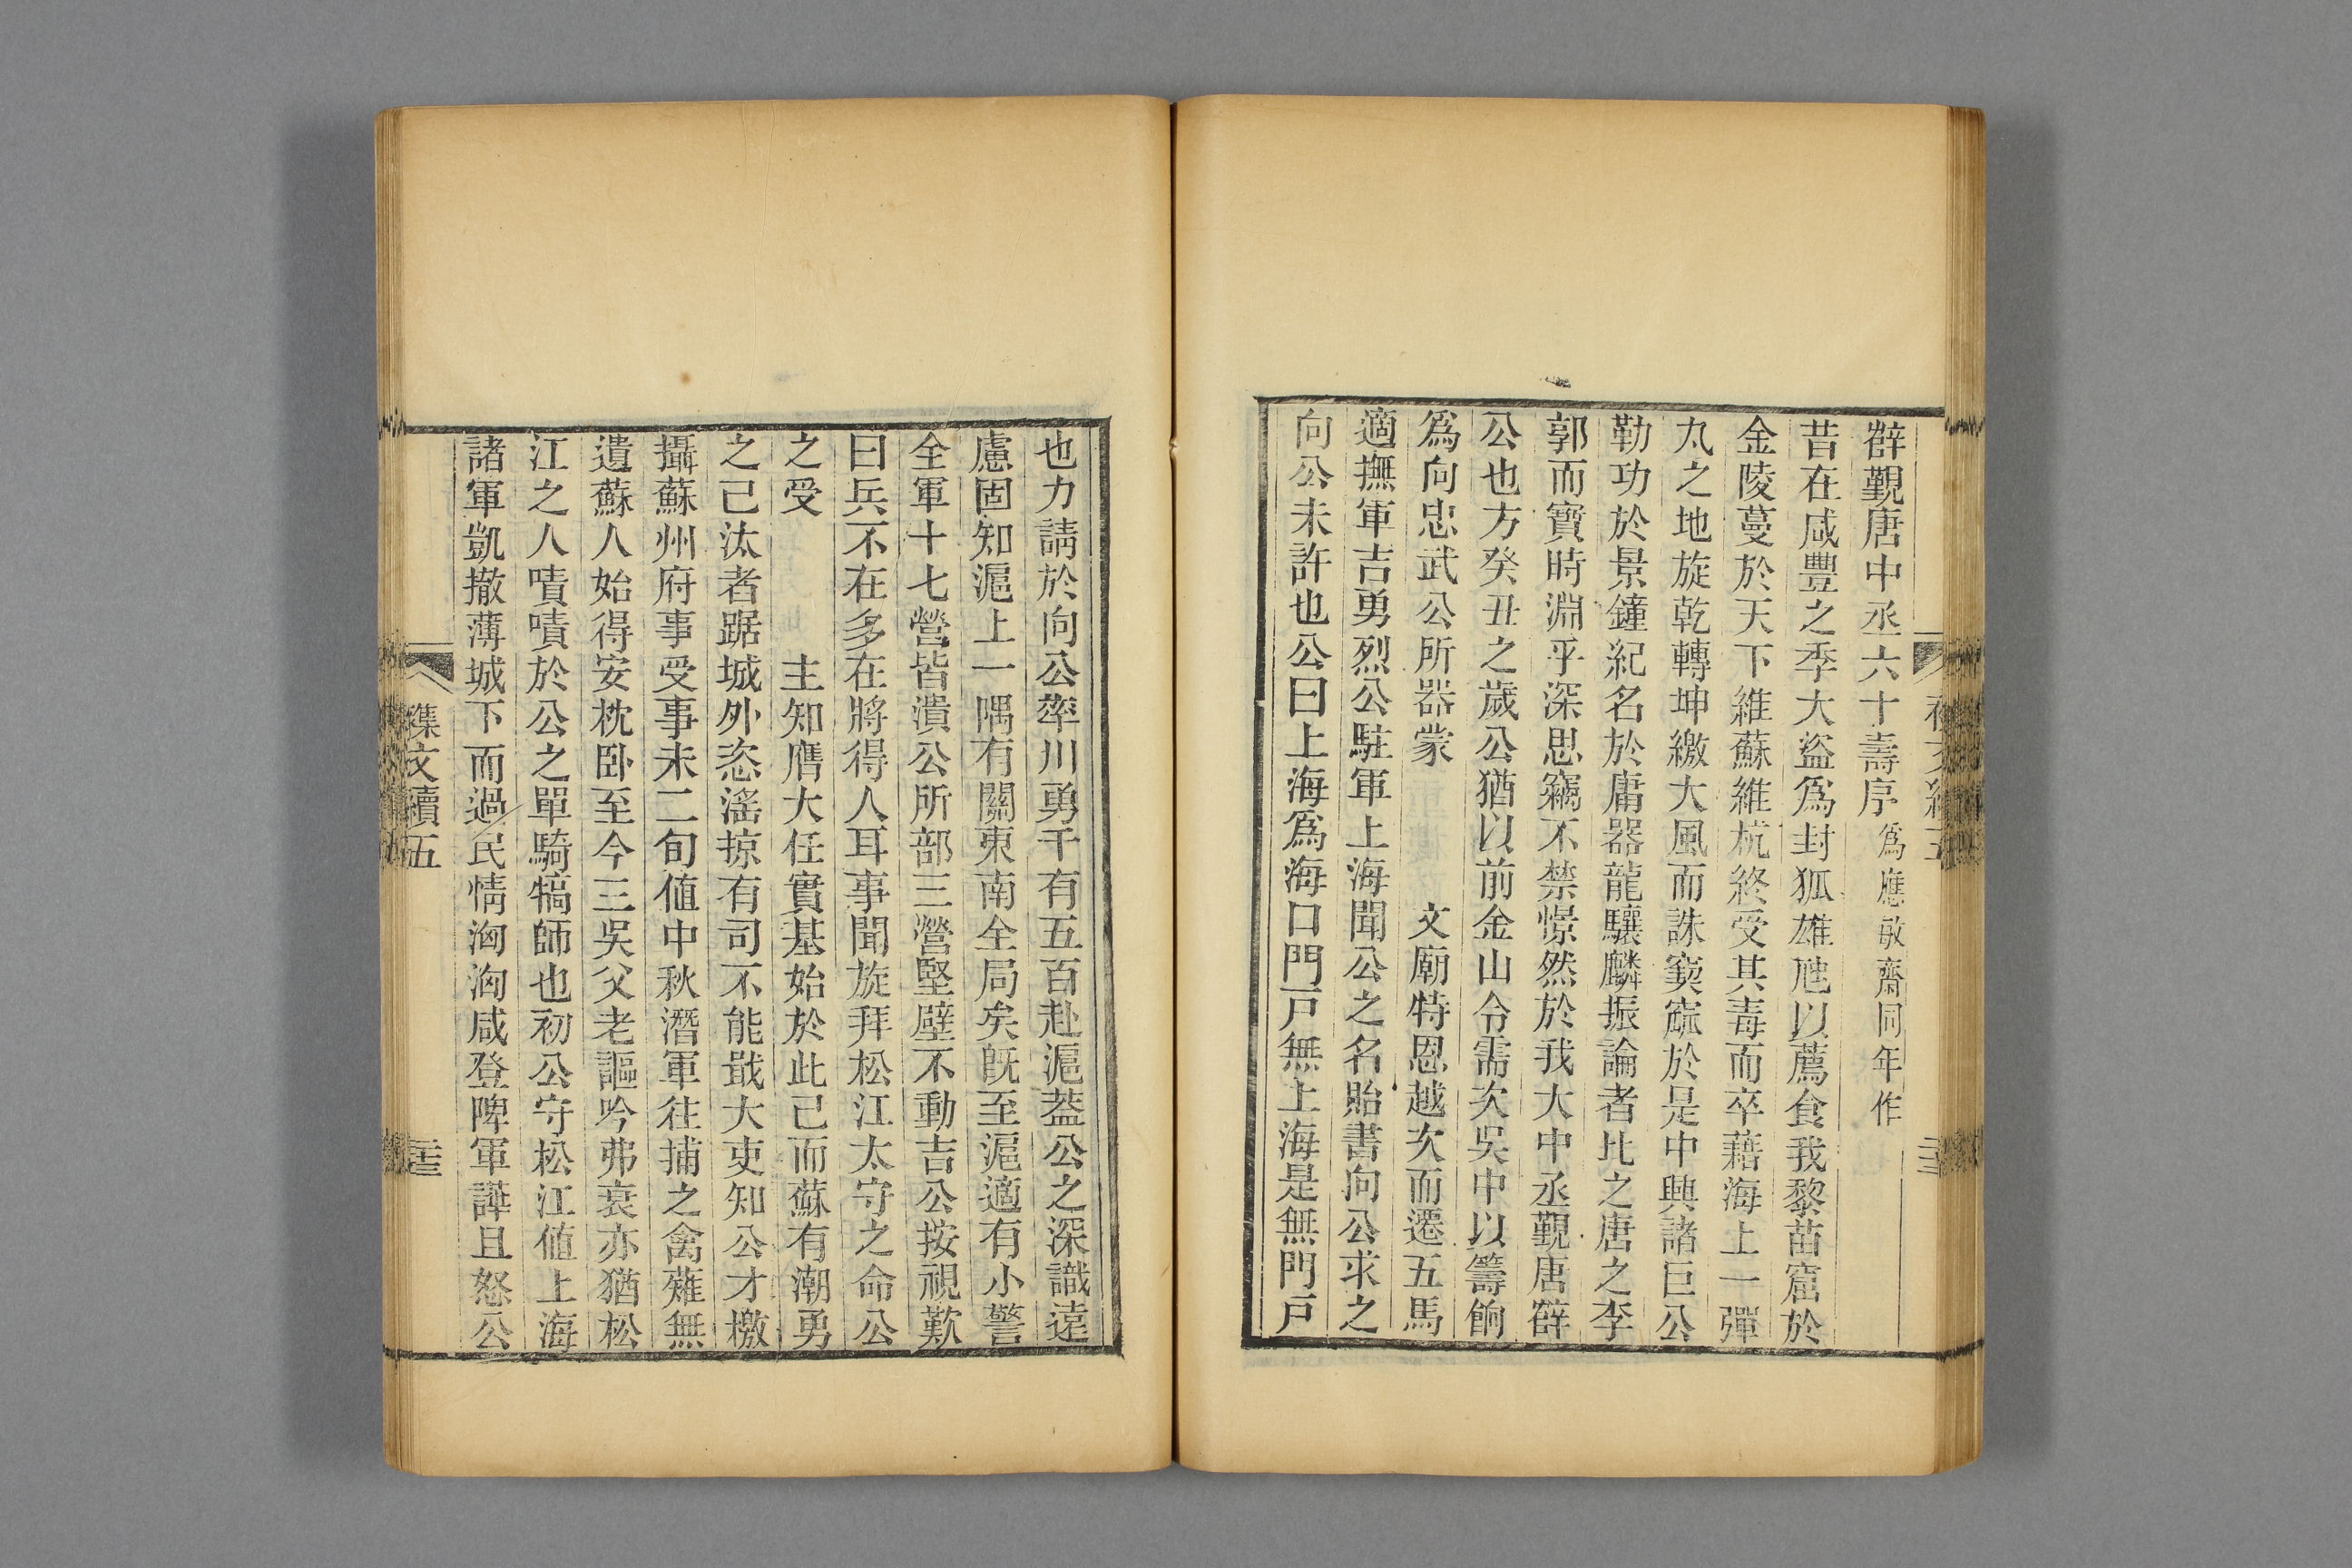 薛覲唐中丞六十壽序 爲應敏齋同年作
昔在咸豐之季大盜爲封狐雄虺以薦食我黎苗窟於
金陵蔓於天下維蘇維杭終受其毒而卒藉海上一彈
丸之地旋乾轉坤繳大風而誅窫窳於是中興諸巨公
勒功於景鐘紀名於庸器龍驤麟振論者比之唐之李
郭而寶時淵乎深思竊不禁憬然於我大中丞覲唐薛
公也方癸丑之歲公猶以前金山令需次吳中以籌餉
爲向忠武公所器蒙 文廟特恩越次而遷五馬
適撫軍吉勇烈公駐軍上海聞公之名貽書向公求之
向公未許也公曰上海爲海口門戸無上海是無門戸
也力請於向公率川勇千有五百赴滬葢公之深識遠
慮固知滬上一隅有關東南全局矣旣至滬適有小警
全軍十七營皆潰公所部三營堅壁不動吉公按視歎
曰兵不在多在將得人耳事聞旋拜松江太守之命公
之受 主知膺大任實基始於此已而蘇有潮勇
之已汰者踞城外恣滛掠有司不能戢大吏知公才檄
攝蘇州府事受事未二旬値中秋潛軍往捕之禽薙無
遺蘇人始得安枕卧至今三吳父老謳吟弗衰亦猶松
江之人嘖嘖於公之單騎犒師也初公守松江値上海
諸軍凱撤薄城下而過民情洶洶咸登陴軍譁且怒公
襍文續五